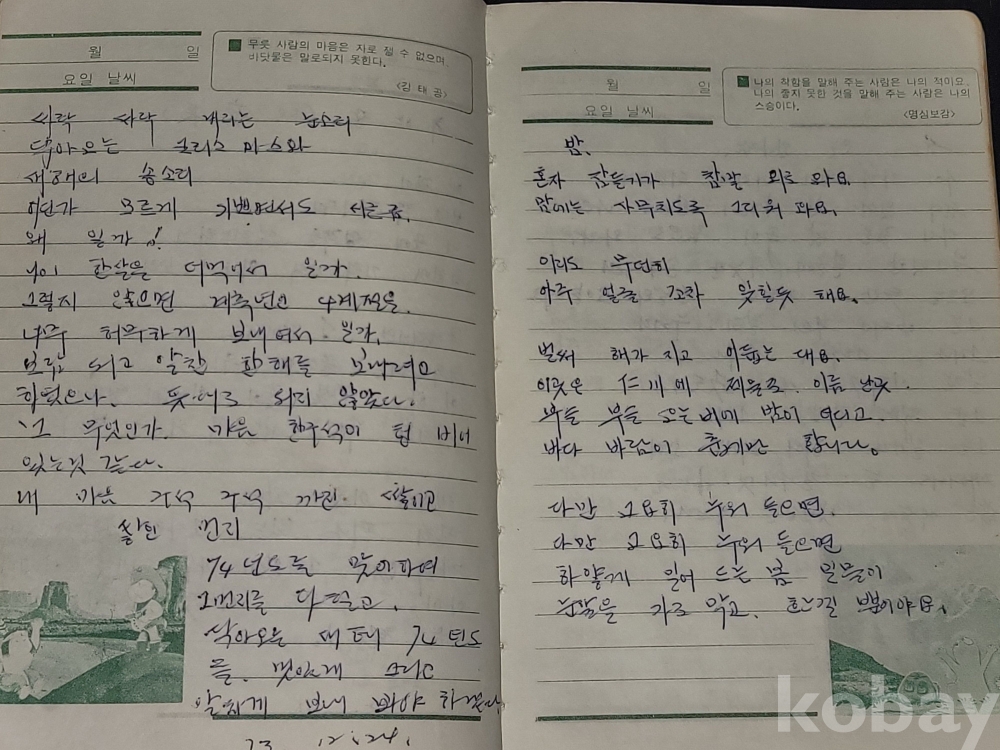 월 일
요일 날씨
무릇 사람의 마음은 자로 잴 수 없으며,
바닷물은 말로되지 못한다.
<강 태 공>
싸락 싸락 내리는 눈소리
닥아오는 크리스 마스와
새해의 종소리
어딘가 모르게 기쁘면서도 서글픔.
왜 일까!
나이 한살을 더먹어서 일까.
그렇지 않으면 4계절을
너무 허무하게 보내어서 일까.
보람 되고 알찬 한해를 보내려고
하였으나. 뜻대로 되지 않았다.
무엇인가. 마음 한구석이 텅 비어
있는것 같다.
내 마음 구석 구석 까진 쌓이고
쌓인 먼지
74년도를 맞이하여
그먼지를 다 털고.
닥아오는 새 해 74년도
를. 멋있게 그리고
알차게 보내 봐야 하겠다
73 12. 24.
월 일
요일 날씨
나의 착함을 말해 주는 사람은 나의 적이요,
나의 좋지 못한 것을 말해 주는 사람은 나의
스승이다.
<명심보감>
밤.
혼자 잠들기가 참말 외로 와요.
맘에는 사무치도록 그리워 와요.
이리도 무던히
아주 얼굴 조차 잊힐듯 해요.
벌써 해가 지고 어둡는 대요.
이곳은 仁川에 제물포 이름 난곳.
부슬 부슬 오는비에 밤이 더디고.
바다 바람이 춥기만 합니다.
다만 고요히 누워 들으면.
다만 고요히 누워 들으면
하얗게 밀어 드는 봄 밀물이
눈앞을 가로 막고. 흐느낄 뿐이야요.
kobay